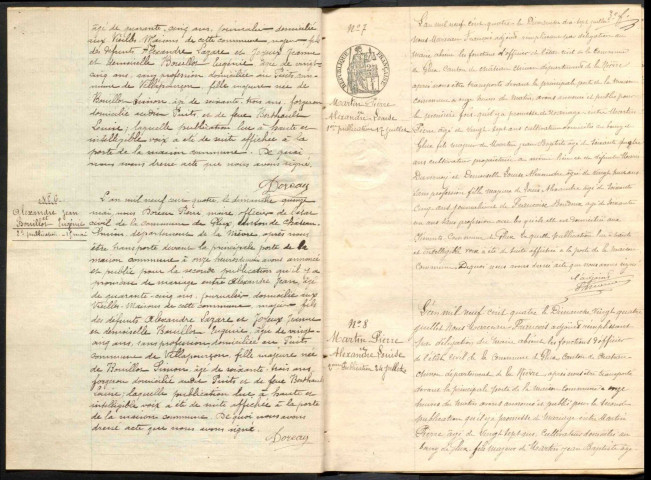 âgé de quarante, cinq ans, journalier domicilié
aux Vieilles Maisons de cette commune, majeur fils
des défunts Alexandre Lazare et Joyeux Jeanne
et demoiselle Bouillon Eugénie, âgée de vingt
cinq ans, sans profession domiciliée au Puits com-
mune de Villapourçon, fille majeure née de
Bouillon Simon âgé de soixante, trois ans, forgeron
domicilié audit Puits, et de feue Berthault
Louise; laquelle publication lue à haute et
intelligible voix a été de suite affichée à la
porte de la maison commune. De quoi
nous avons dressé acte que nous avons signé.
Doreau
N° 6.
Alexandre Jean
et
Bouillon Eugénie
2e publication
L'an mil neuf cent quatre le dimanche quinze
mai, nous Doreau Pierre maire officier de l'état
civil de la commune de Glux canton de Château-
Chinon département de la Nièvre, après nous
être transporté devant la principale porte de la
maison commune à onze heures avons annoncé
et publié pour la seconde publication qu'il y a
promesse de mariage entre Alexandre Jean, âgé
de quarante-cinq ans, journalier domicilié aux
Vieilles-Maisons de cette commune, majeur fils
des défunts Alexandre Lazare et Joyeux Jeanne
et demoiselle Bouillon Eugénie, âgée de vingt-
cinq ans, sans profession domiciliée au Puits
commune de Villapourçon, fille majeure née
de Bouillon Simon, âgé de soixante, trois ans,
forgeron domicilié audit Puits et de feue Berthault
Louise, laquelle publication lue à haute et
intelligible voix a été de suite affichée à la porte
de la maison commune. De quoi nous avons
dressé acte que nous avons signé.
Doreau
N° 7
RÉPUBLIQUE FRANÇAISE
Martin Pierre
et
Alexandre Louise
1re publication 17 juillet
L'an mil neuf cent quatre le Dimanche dix sept juillet
nous Marceau François adjoint remplissant par délégation du
maire absent les fonctions d'officier de l'état civil de la commune
de Glux, Canton de Château Chinon département de la Nièvre
après nous être transporté devant la principale porte de la maison
commune à onze heures du matin avons annoncé et publié pour la
première fois qu'il y a promesse de mariage entre Martin
Pierre âgé de vingt sept ans cultivateur domicilié au bourg de
Glux fils majeur de Martin Jean Baptiste âgé de soixante
ans cultivateur propriétaire au même lieu et de défunte
et Demoiselle Louise Alexandre âgée de vingt
sans profession fille majeure de Louis Alexandre âgé de soixante
cinq ans journalier et de
ans sans profession avec lesquels elle est domiciliée aux
commune de Glux laquelle publication lue à haute
et intelligible voix a été de suite affichée à la porte de la maison
commune. De quoi nous avons dressé acte que nous avons signé
L'adjoint
N° 8
Martin Pierre
et
Alexandre Louise
2e Publication 24 juillet
L'an mil neuf cent quatre le Dimanche vingt quatre
juillet nous Marceau François adjoint remplissant
par délégation du maire absent les fonctions d'officier
de l'état civil de la Commune de Glux Canton de Château-
chinon département de la Nièvre, après nous être transporté
devant la principale porte de la maison commune à onze
heures du matin avons annoncé et publié pour la seconde
publication qu'il y a promesse de mariage entre Martin
Pierre âgé de vingt sept ans Cultivateur domicilié au
bourg de Glux fils majeur de Martin Jean Baptiste âgé